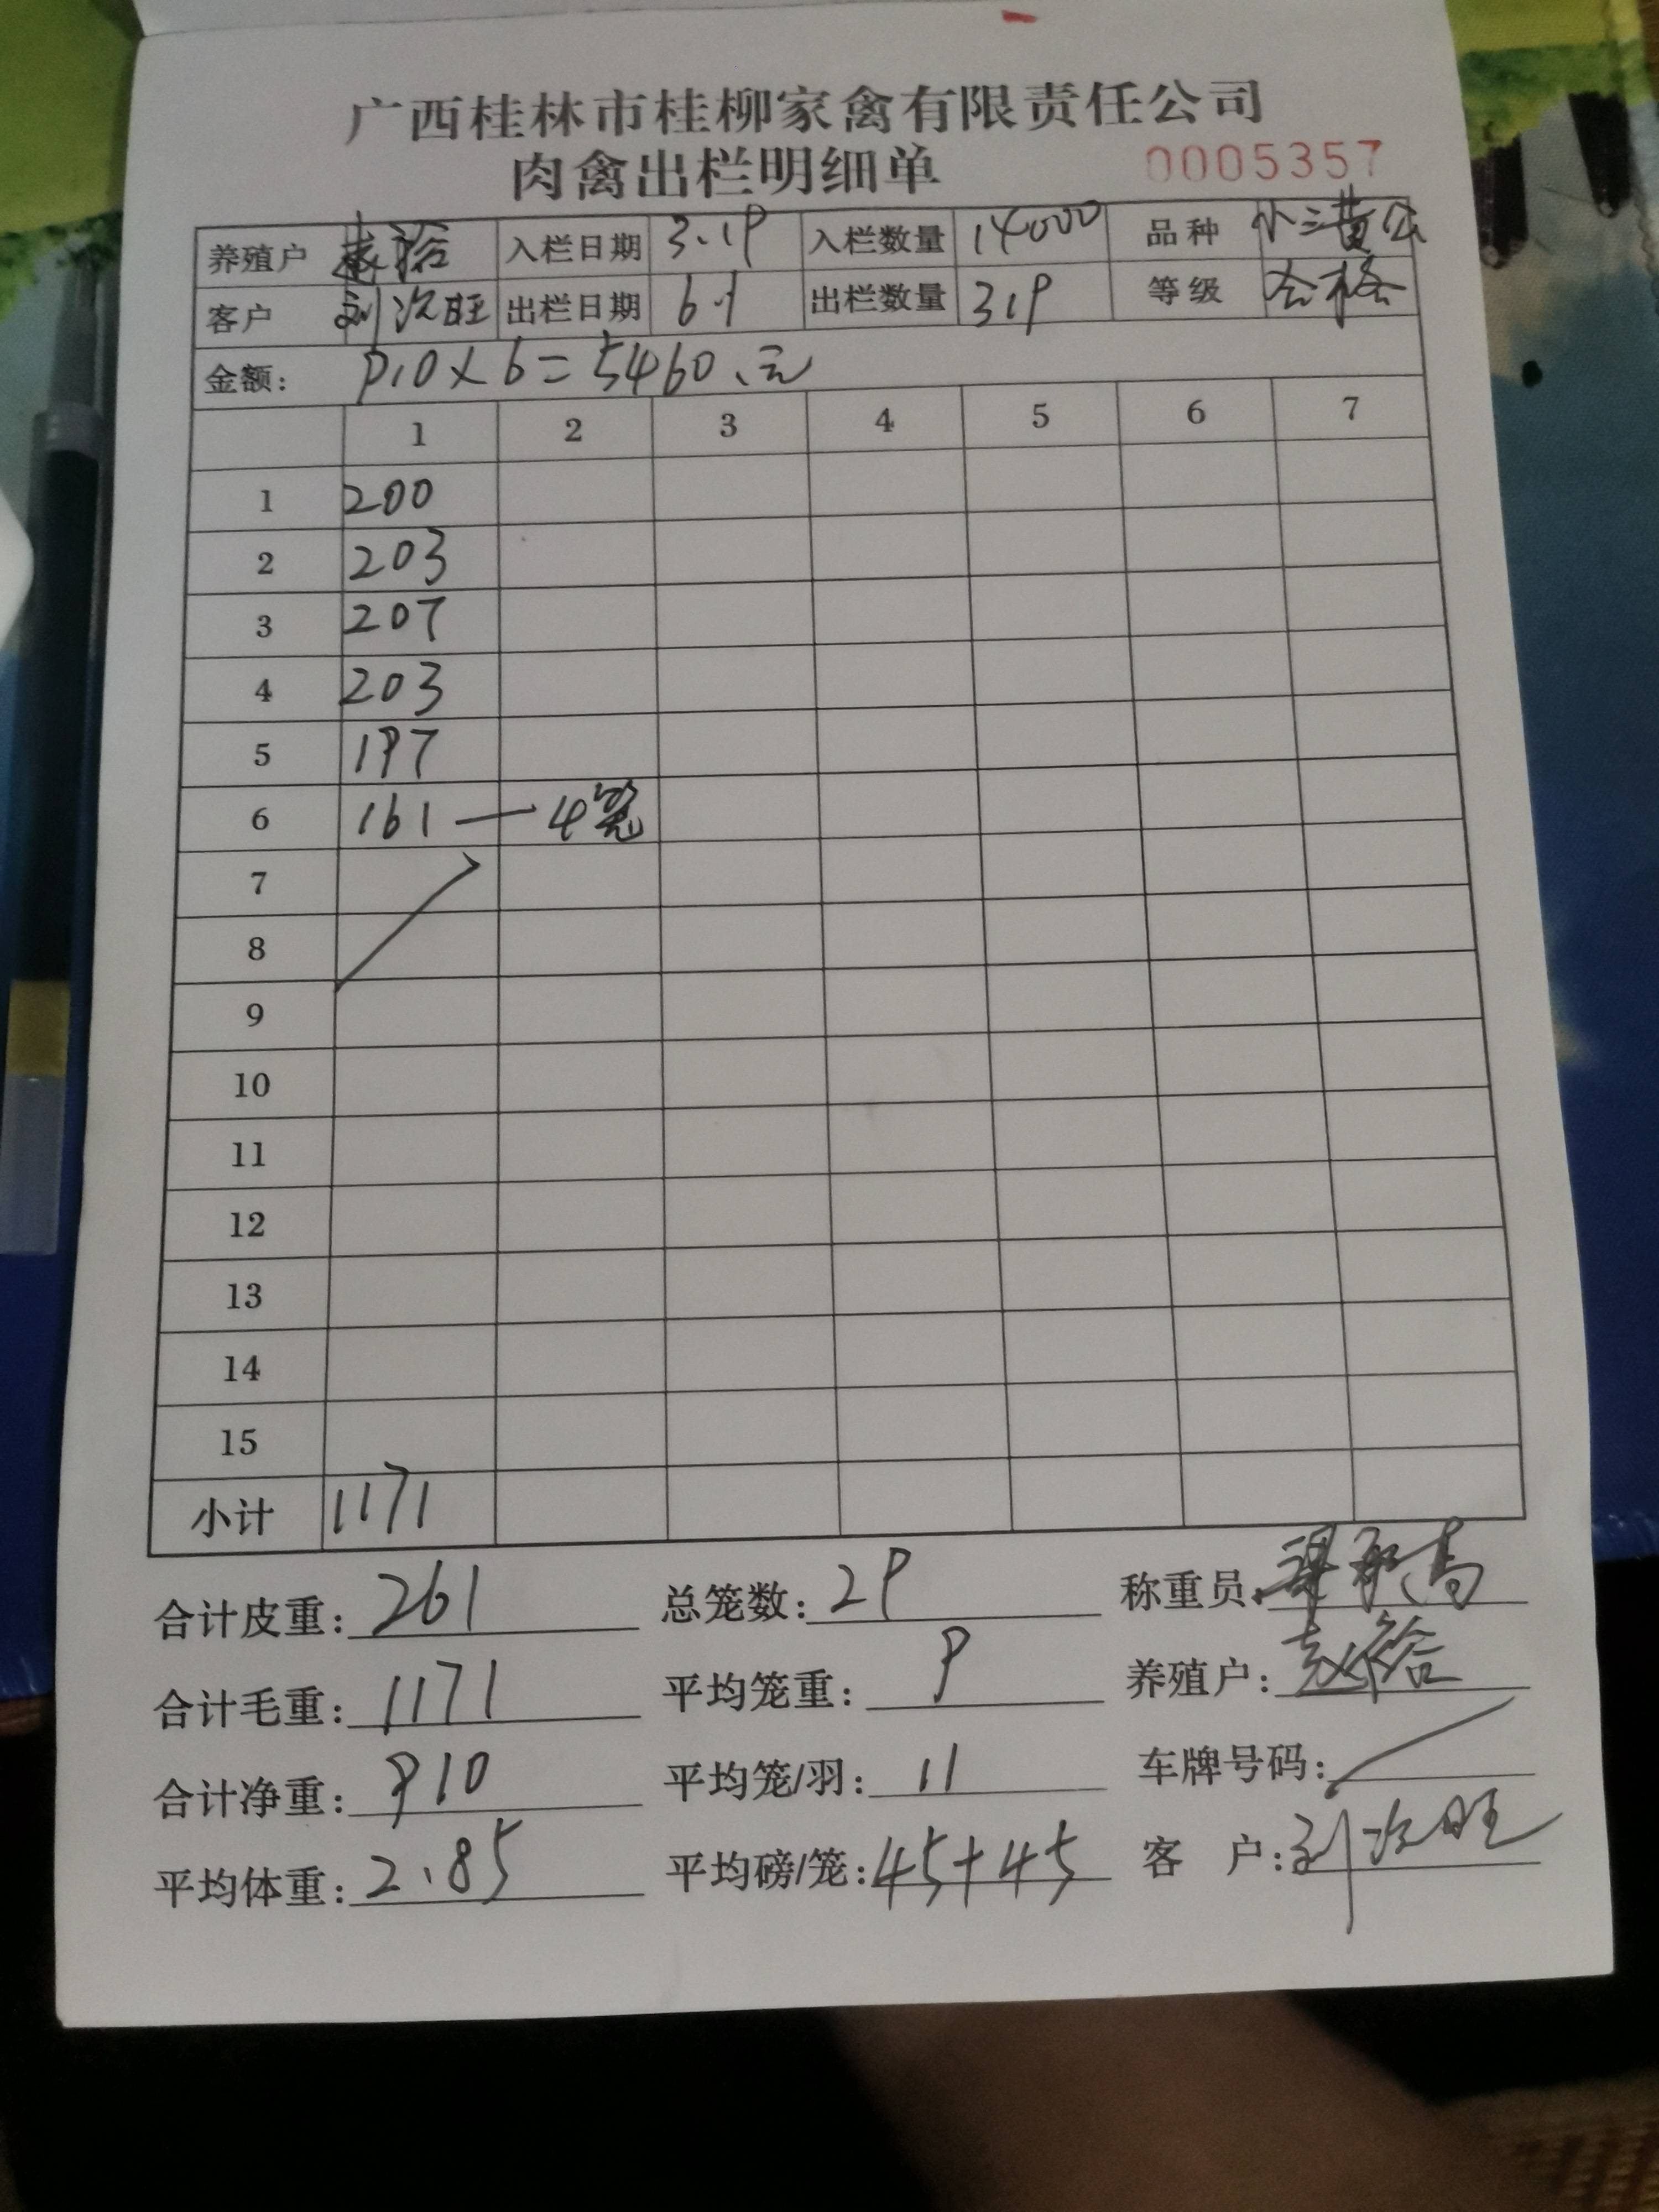 广西桂林市桂柳家禽有限责任公司
肉禽出栏明细单 0005357
养殖户 裕 入栏日期 3.19 入栏数量 14000 品种 小三黄公
客户 刘次旺 出栏日期 6.1 出栏数量 319 等级 合格
金额: 910×6=5460.元
1 2 3 4 5 6 7
1 200
2 203
3 207
4 203
5 197
6 161—4笼
7
8
9
10
11
12
13
14
15
小计 1171
合计皮重: 261 总笼数: 29 称重员:
合计毛重: 1171 平均笼重: 9 养殖户: 赵裕
合计净重: 910 平均笼/羽: 11 车牌号码:
平均体重: 2.85 平均磅/笼: 45+45 客 户: 刘次旺